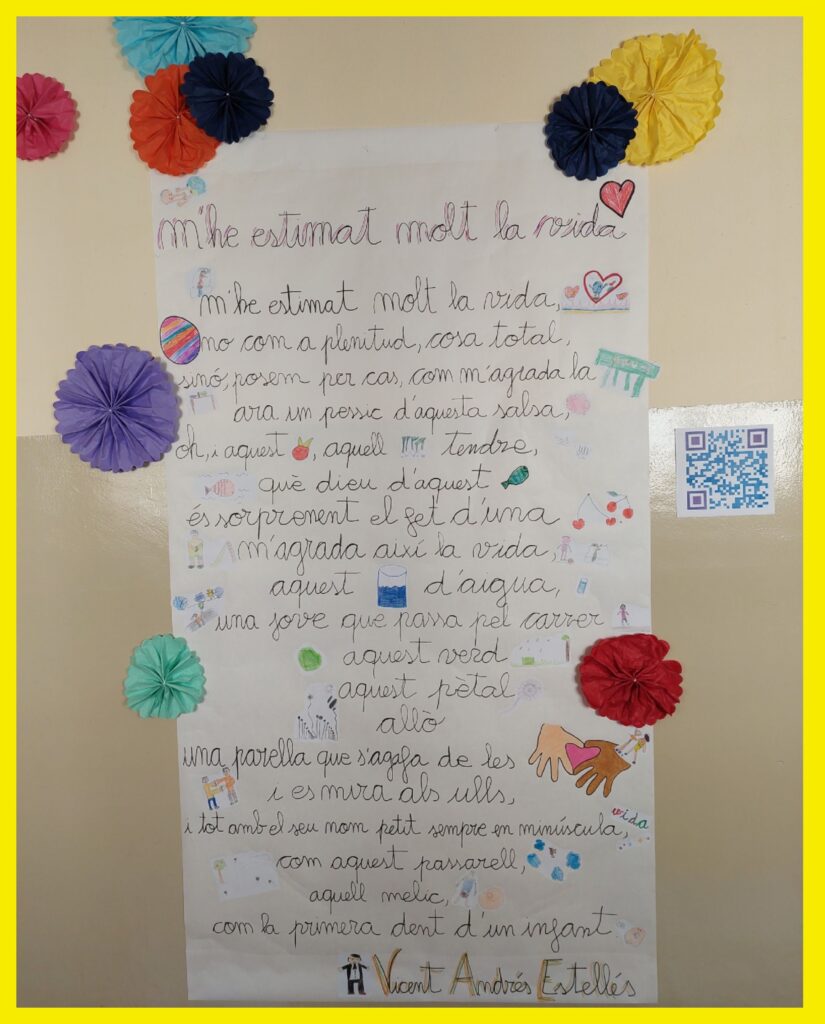 m'he estimat molt la vida
m'he estimat molt la vida,
no com a plenitud, cosa total,
sinó, posem per cas, com m'agrada la
ara un pessic d'aquesta salsa,
oh, i aquest , aquell tendre,
què dieu d'aquest
és sorprenent el fet d'una
m'agrada així la vida,
aquest d'aigua,
una jove que passa pel carrer
aquest verd
aquest pètal
allò
una parella que s'agafa de les
i es mira als ulls,
i tot amb el seu nom petit sempre en minúscula,
vida
com aquest passarell,
aquell melic,
com la primera dent d'un infant
Vicent Andrés Estellés